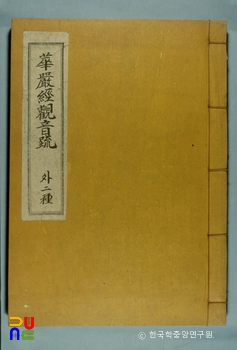 華嚴經觀音䟽
外二種
ⓒ 한국학중앙연구원